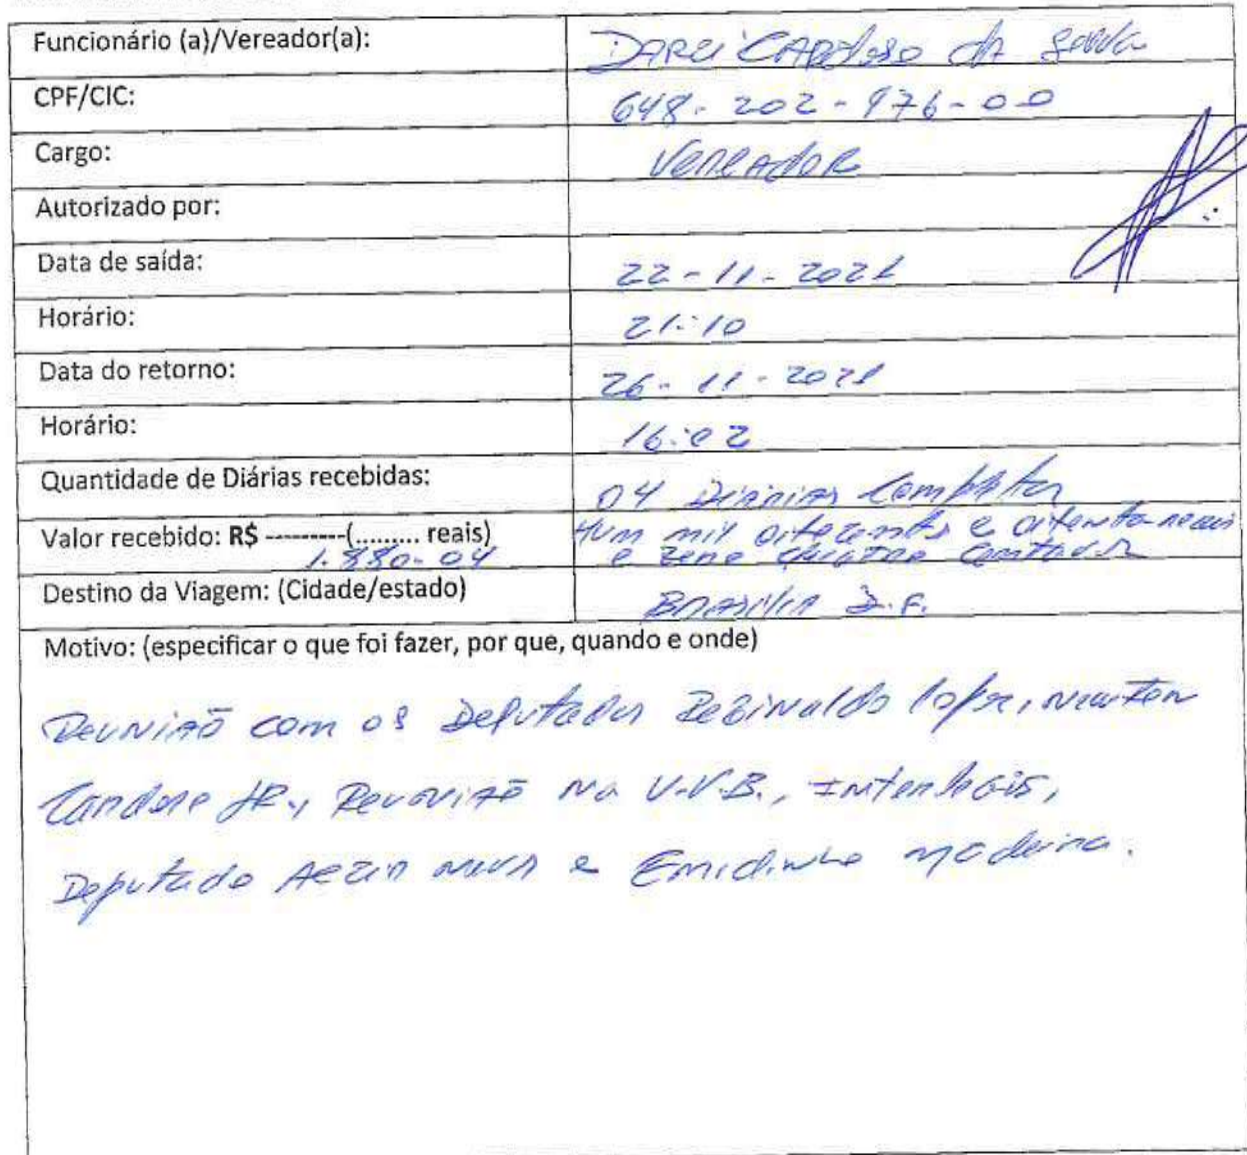 Funcionário (a)/Vereador(a): DARCI CARDOSO DA
CPF/CIC: 648-202-976-00
Cargo: VEREADOR
Autorizado por:
Data de saída: 22-11-2021
Horário: 21:10
Data do retorno: 26-11-2021
Horário: 16:02
Quantidade de Diárias recebidas: 04 DIÁRIAS Completas
Valor recebido: R$ ---------(......... reais) Hum mil oitocentos e oitenta reais
1.880-04 e zero quatro centavos
Destino da Viagem: (Cidade/estado) BRASILIA D.F.
Motivo: (especificar o que foi fazer, por que, quando e onde)
Reunião com os Deputados Reginaldo Lopes, Newton
Cardoso JR., Reunião na U.V.B., Interlegis,
Deputado Aécio Neves e Emidinho madeira.